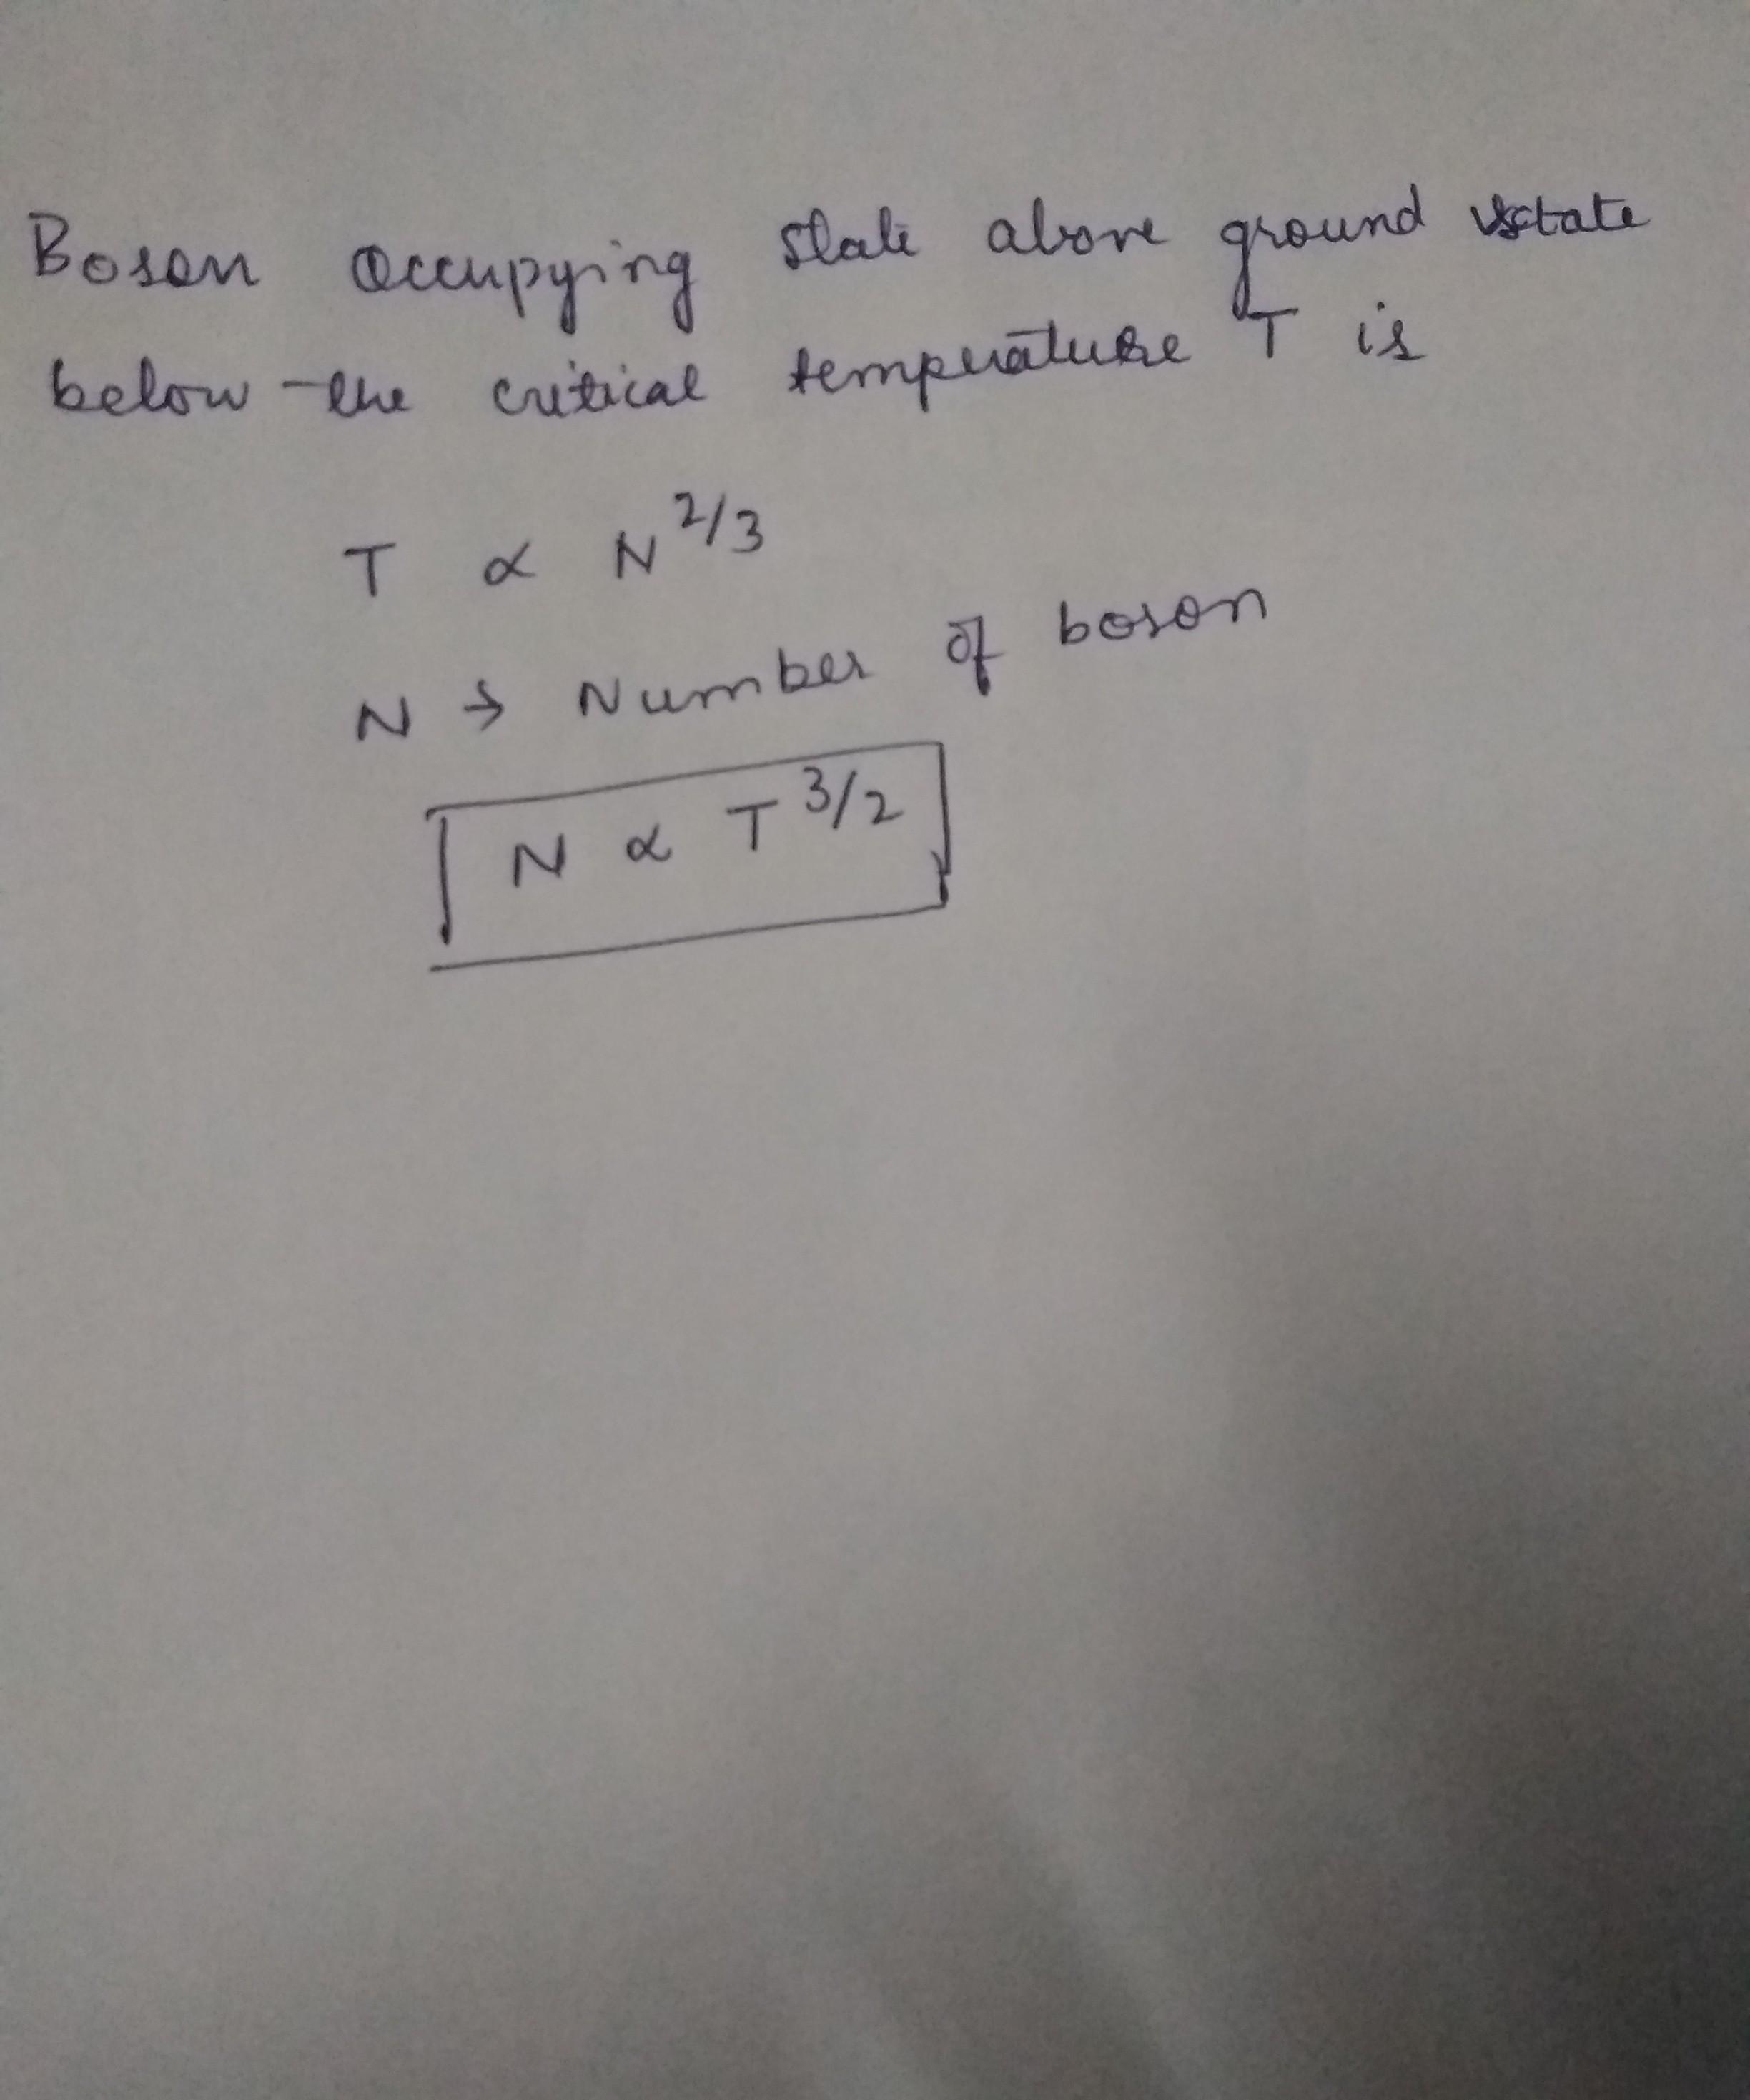 Boson occupying state above ground state
below the critical temperature T is
T ∝ N^2/3
N → Number of boson
N ∝ T^3/2